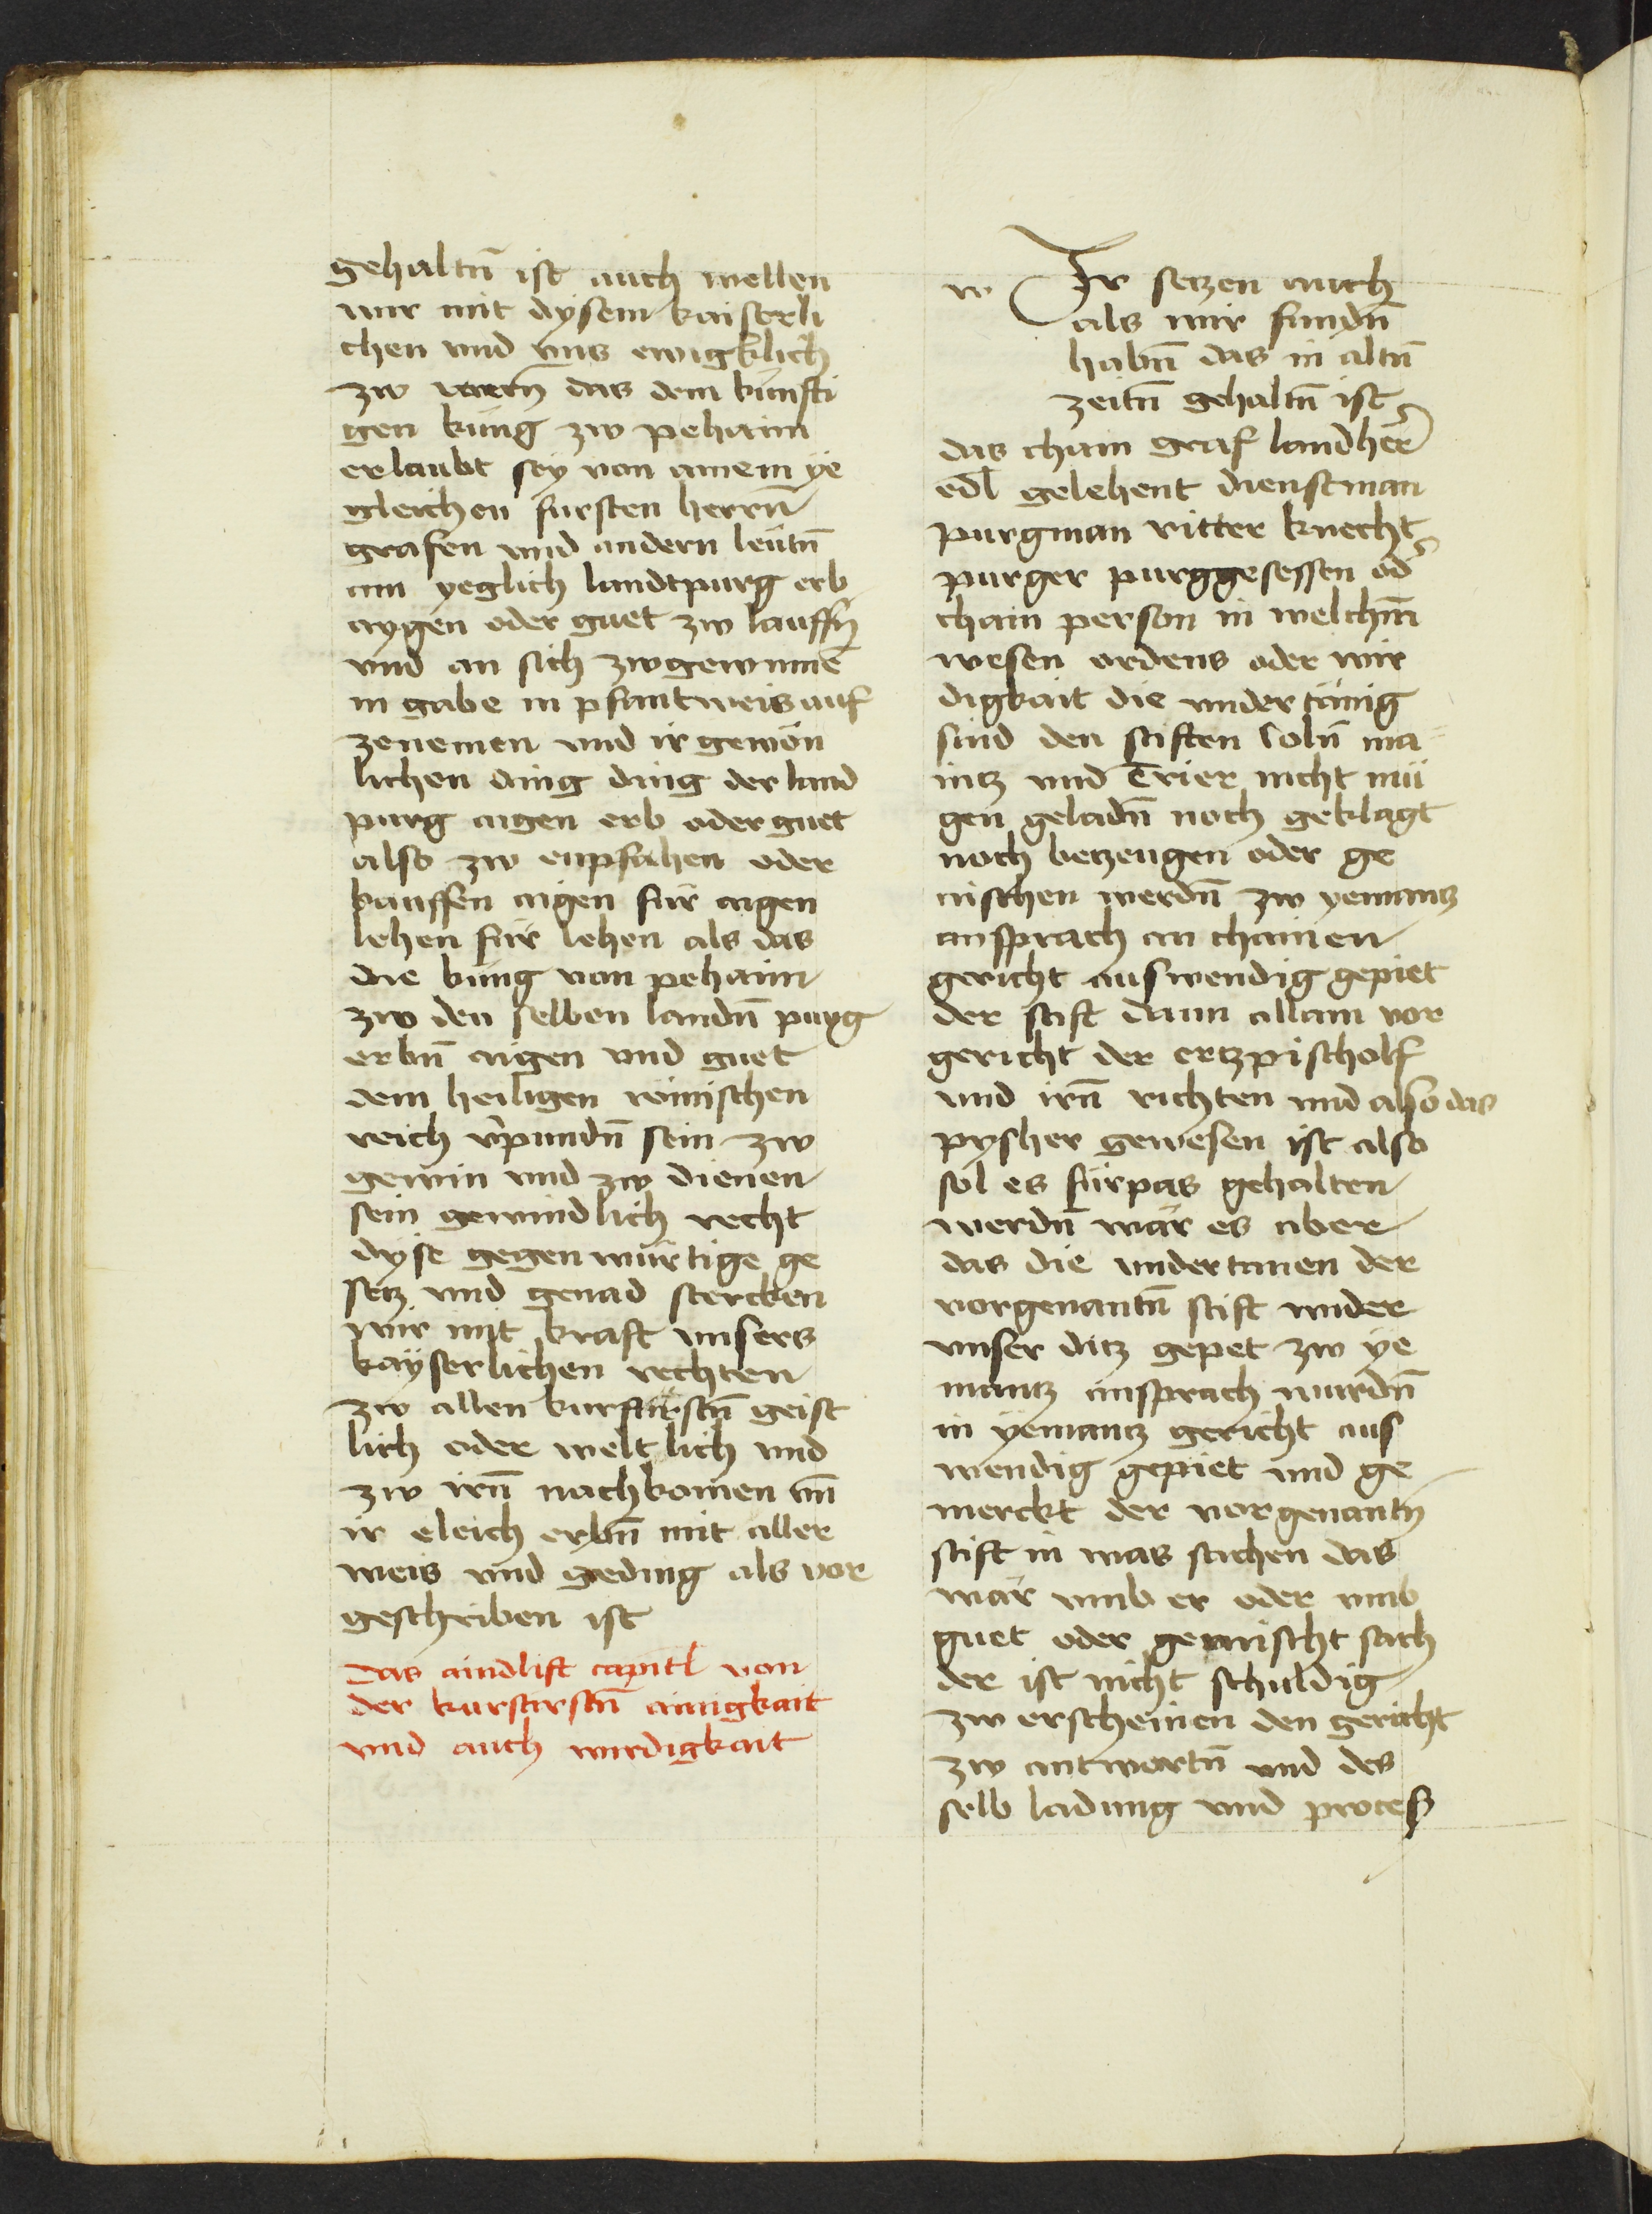 gehaltn̄ ist auch wellen
wir mit dysem kaiserli
chen vnd vns ewigklich
zw wern̄ das dem künfti
gen küng zw pehaim
erlaubt sey von ainem ye
gleichen fursten herrn̄
grafen vnd andern leütn̄
ain yeglich landtpurg erb
aygen oder guet zw kauffn̄
vnd an sich zwgewinnē
in gabe in pfantweis auf
zenemen vnd ir gewon
lichen ding ding der land
purg aigen erb oder guet
also zw enpfahen oder
kauffen aigen für aigen
lehen für lehen als das
die küng von pehaim
zw den selben landn̄ purg
erbn̄ aigen vnd guet
dem heiligen römischen
reich v̓pundn̄ sein zw
gewin vnd zw dienen
sein gewindlich recht
dyse gegenwürtige ge
setz vnd genad stercken
wir mit kraft vnsers
kayserlichen rechten
zw allen kurfürstn̄ geist
lich oder weltlich vnd
zw irn̄ nachkomen vn̄
ir eleich erbn̄ mit aller
weis vnd geding als vor
geschriben ist
Das aindlift capitl von
der kurfürstn̄ ainigkait
vnd auch wirdigkait
w Ir setzen auch
als wir fundn̄
habn̄ das in altn̄
zeitn̄ gehaltn̄ ist
das chain graf landher̄
edl gelehent dienstman
purgman ritter knecht
purger purggesessen od̓
chain person in welchm̄
wesen ordens oder wir
digkait die vndertänig
sind den stiften Coln̄ ma
intz vnd Trier nicht mü
gen geladn̄ noch geklagt
noch betzeugen oder ge
aischen werdn̄ zw yemantz
ansprach an chainen
gericht auswendig gepiet
der stift dann allain vor
gericht der ertzpischolf
vnd irn̄ richten vnd also das
pysher gewesen ist also
sol es fürpas gehalten
werdn̄ wär es aber
das die vndertanen der
vorgenantn̄ stift wider
vnser ditz gepet zw ye
mantz ansprach wurdn̄
in yemantz gericht aus
wendig gepiet vnd ge
merckt der vorgenantn̄
stift in was sachen das
wär vmb er oder vmb
guet oder gemischt sach
der ist nicht schuldig
zw erscheinen den gericht
zw antwortn̄ vnd des
selb ladung vnd proceß